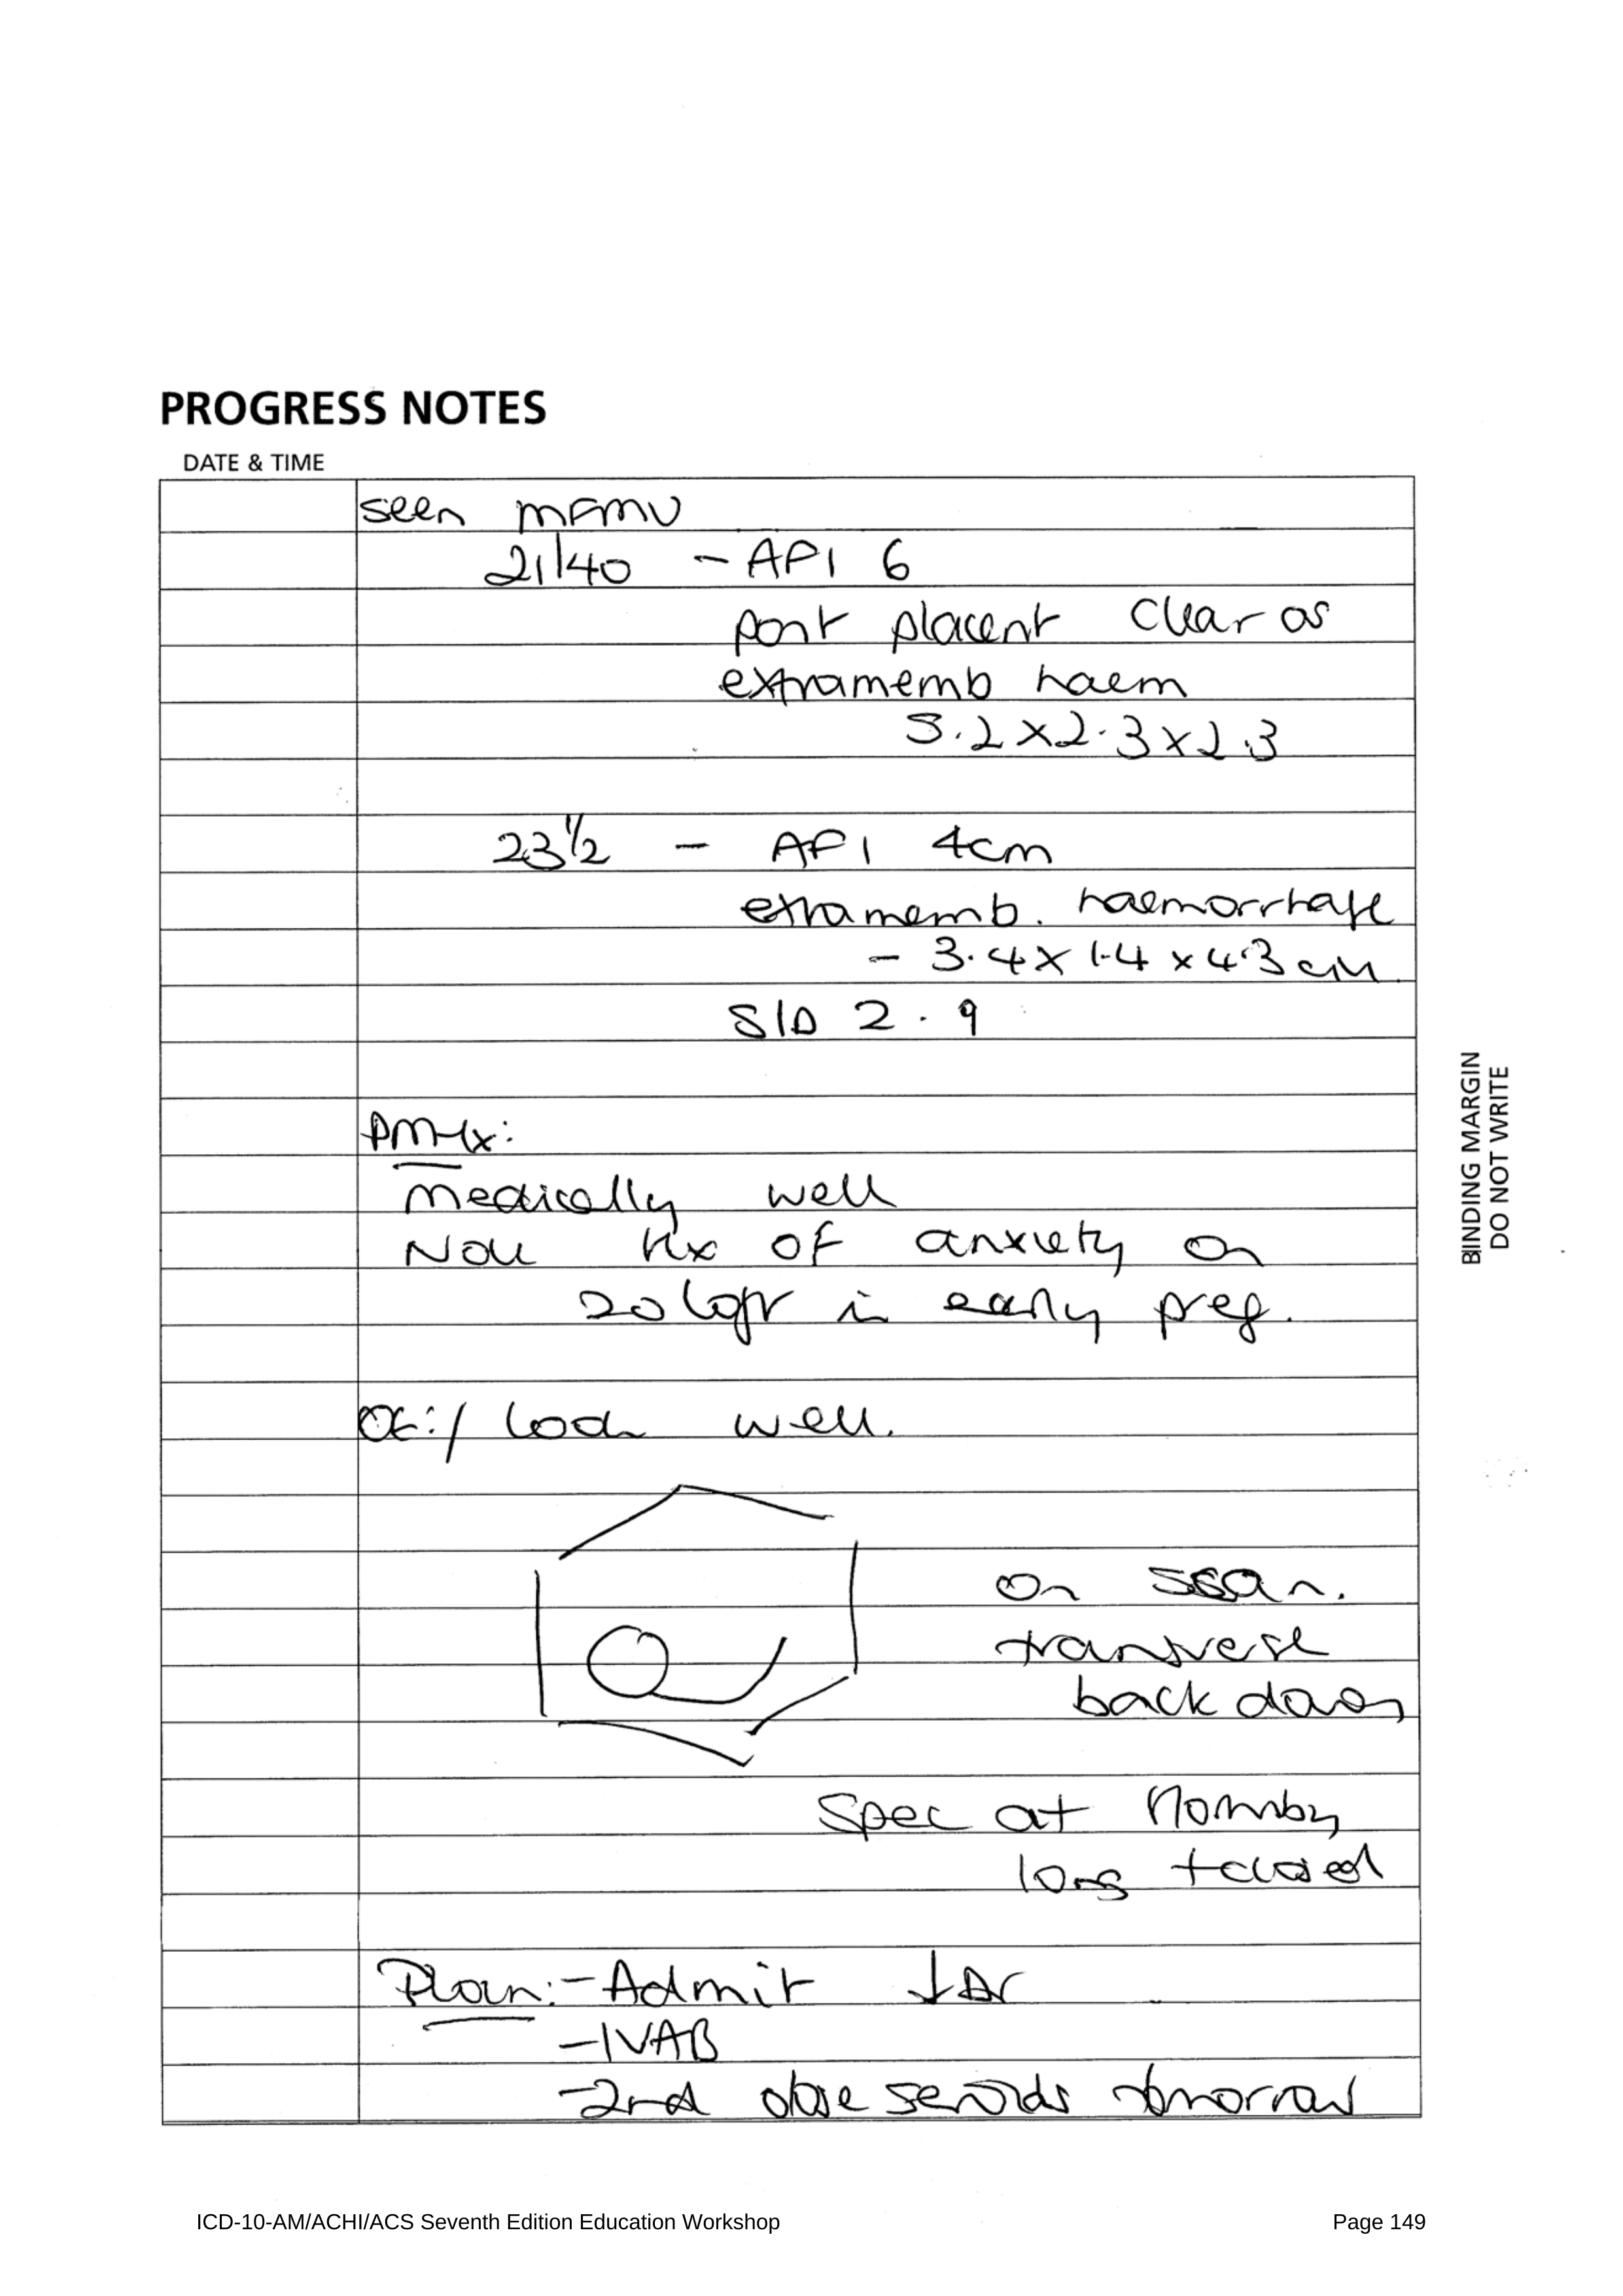 PROGRESS NOTES
DATE & TIME
seen MFMU
21/40 - AFI 6
post placent clear os
extramemb haem
5.2 x 2.3 x 2.3
23½ - AFI 4cm
extramemb. haemorrhage
- 3.4 x 1.4 x 4.3 cm
S/D 2.9
PMHx:
Medically well
Hx of anxiety on
20 in early preg.
OE:/ well.
on scan.
transverse
back down
Spec at
long + closed
Plan: - Admit
- IVAB
- 2nd dose steroids tomorrow
BINDING MARGIN
DO NOT WRITE
ICD-10-AM/ACHI/ACS Seventh Edition Education Workshop Page 149